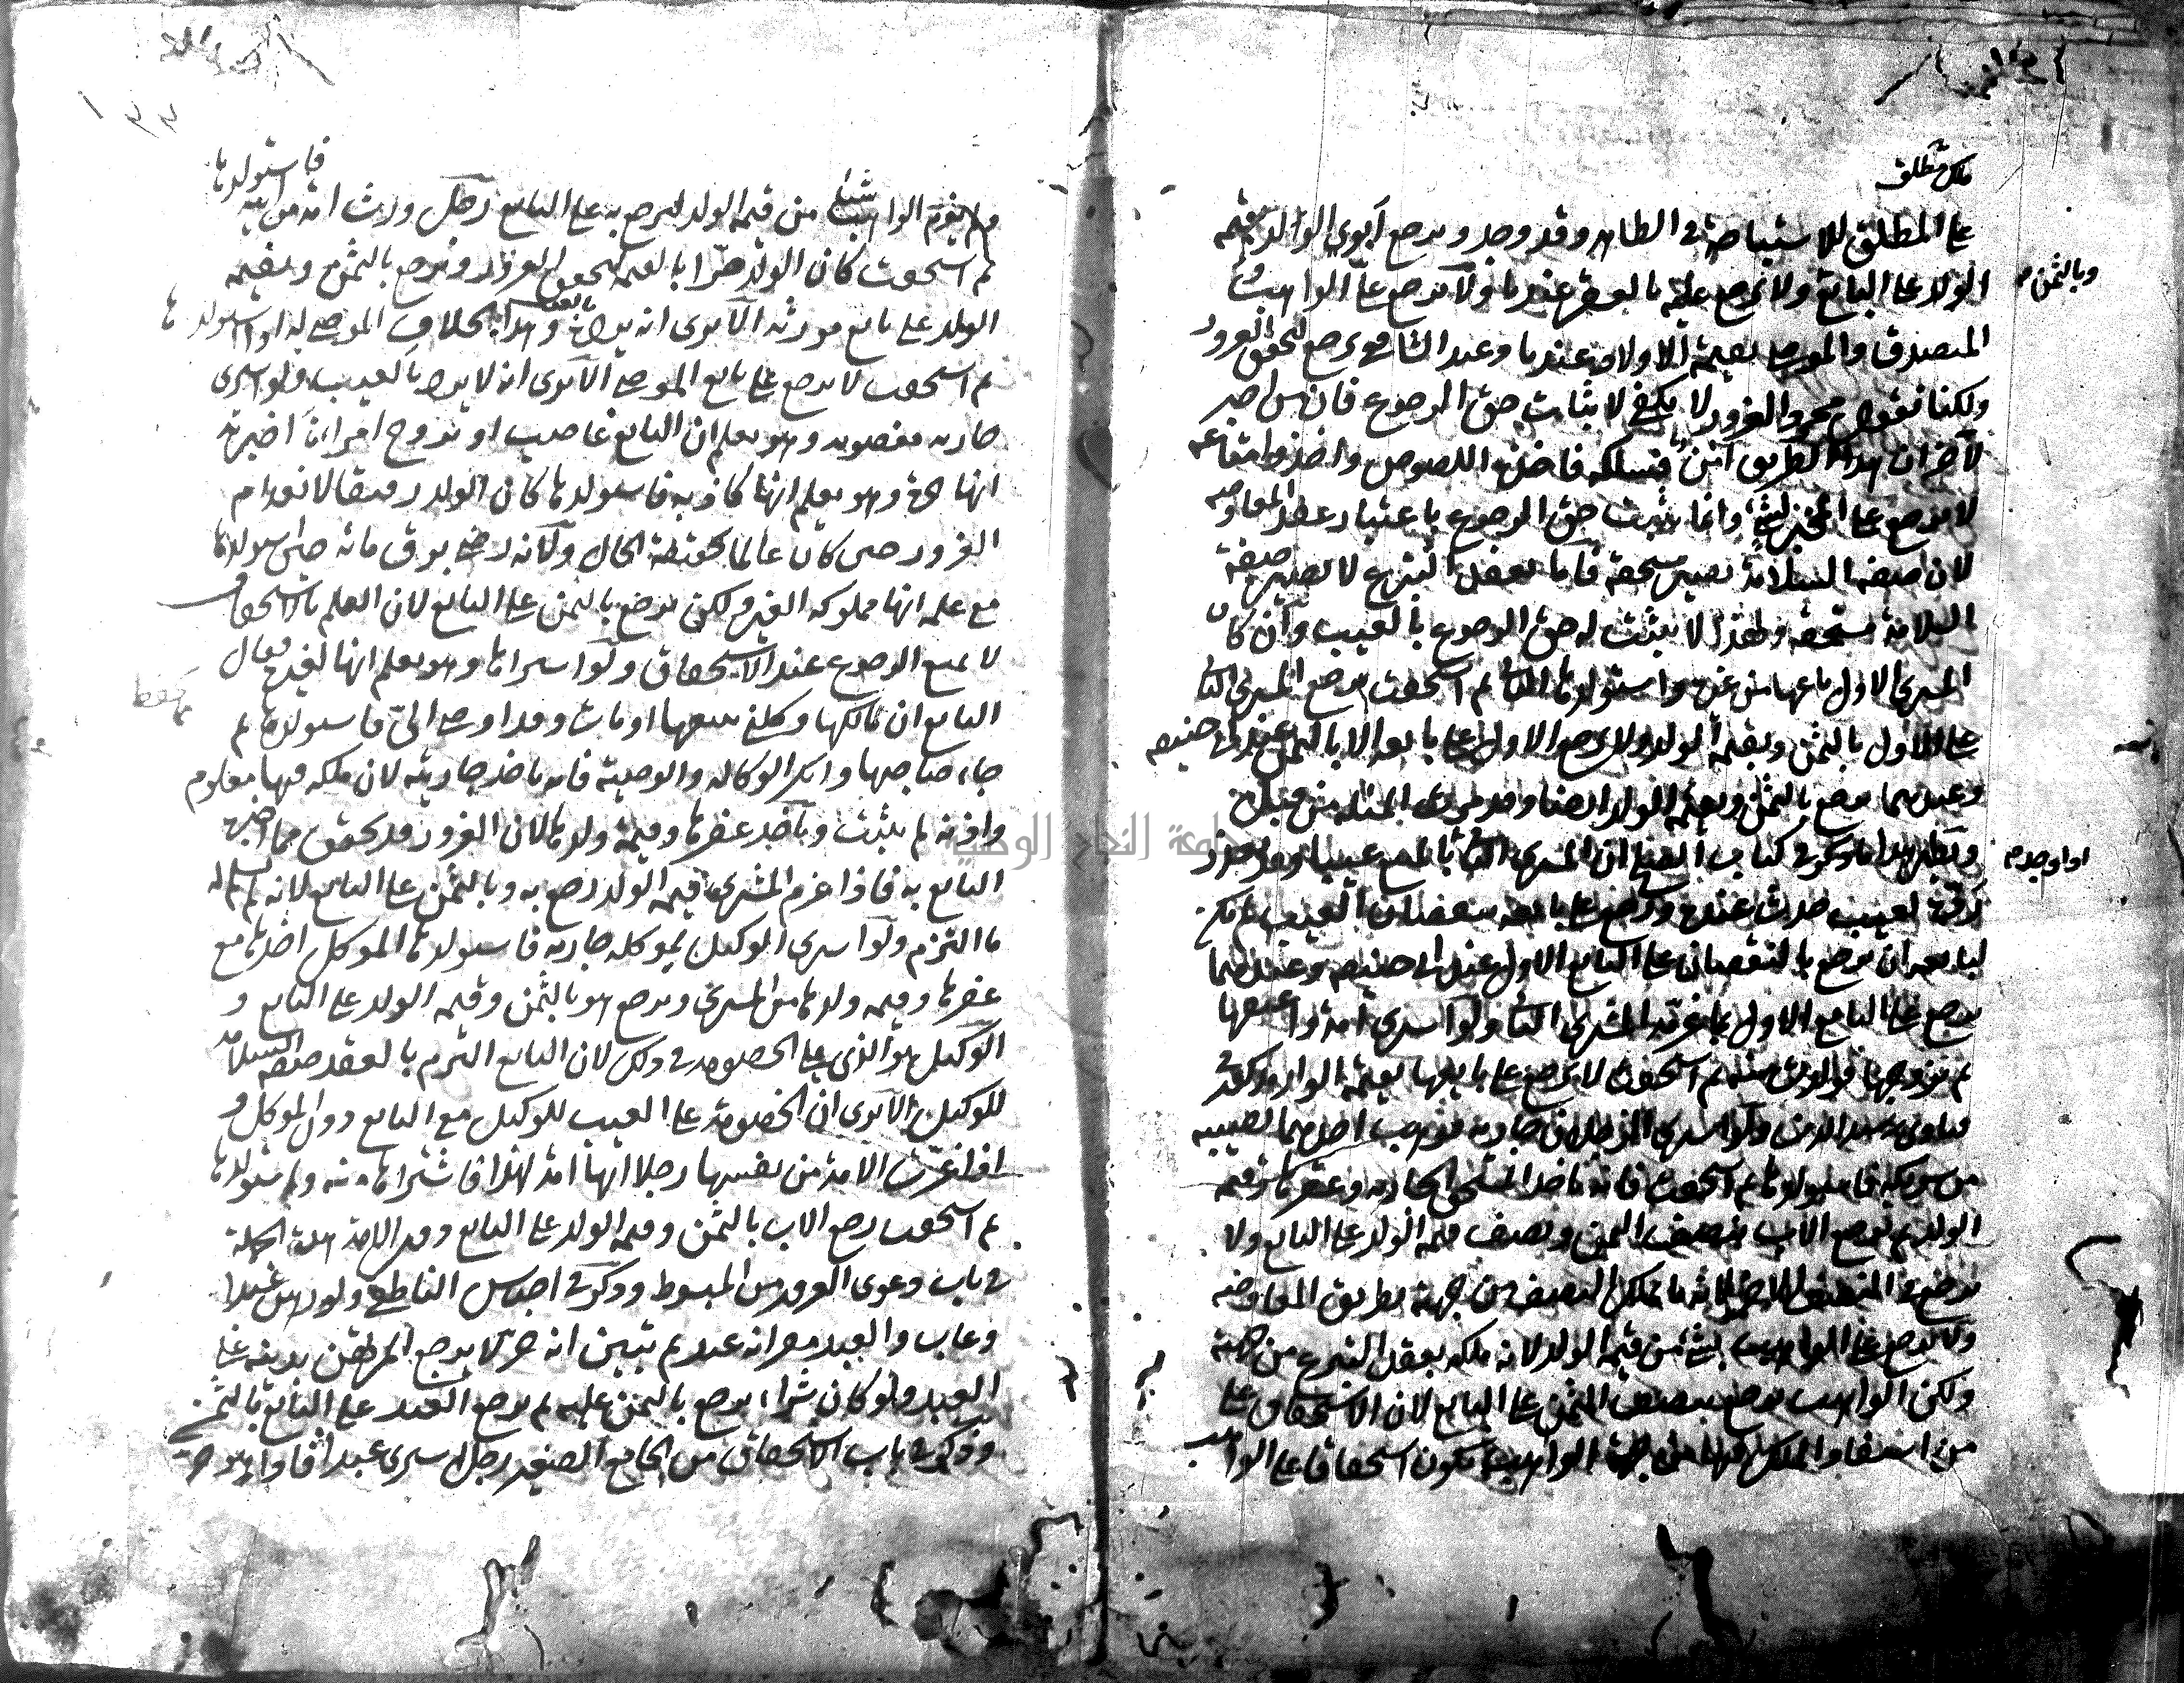 ملك مطلق
على المطلق للاستباحة في الظاهر وقد وجد ويرجع أبوي الولد بقيمة
وبالثمن
الولد على البايع ولا يرجع عليه بالعقر عندنا ولا يرجع على الواهب و
المتصدق والموصي بقيمة الاولاد عندنا وعند الشافعي يرجع لتحقق الغرور
ولكنا نقول مجرد الغرور لا يكفي لاثبات حق الرجوع فان من اخبر
لآخر ان هذا الطريق آمن فسلكه فاخذه اللصوص واخذوا متاعه
لا يرجع على المخبر بشيء وانما يثبت حق الرجوع باعتبار عقد المعاوضه
لان صفة السلامة تصير مستحقة فاما بعقد التبرع لا تصير صفة
السلامة مستحقة ولهذا لا يثبت له حق الرجوع بالعيب وان كان
المشتري الاول باعها من غيره واستولدها الثاني ثم استحقت يرجع المشتري الثاني
على الاول بالثمن وبقيمة الولد ولا يرجع الاول على بايعه الا بالثمن عند ابي حنيفه
وعندهما يرجع بالثمن وبقيمة الولد ايضا وقد مرت المسئلة من قبل
ونظير هذا ما ذكر في كتاب الصلح ان المشتري الثاني بالمبيع عيبا وقد تعذر
اذا وجد
رده لعيب حدث عنده ورجع على بايعه بنقصان العيب لم يكن
لبايعه ان يرجع بالنقصان على البايع الاول عند ابي حنيفه وعندهما
يرجع على البايع الاول بما غرمه المشتري الثاني ولو اشترى امة واعتقها
ثم تزوجها فولدت منه ثم استحقت لا يرجع على بايعها بقيمة الولد ذكره في
فتاوى رشيد الدين ولو اشترى الرجلان جارية فوهب احدهما نصيبه
من شريكه فاستولدها ثم استحقت فانه ياخذ المستحق الجارية وعقرها وقيمة
الولد ثم يرجع الاب بنصف الثمن ونصف قيمة الولد على البايع ولا
يرجع في النصف الاخر لانه ما تملك النصف من جهته بطريق المعاوضه
ولا يرجع على الواهب بشيء من قيمة الولد لانه ملكه بعقد التبرع من جهته
ولكن الواهب يرجع بنصف الثمن على البايع لان الاستحقاق على
من استفاد الملك فيها من جهة الواهب يكون استحقاقا على الواهب
١٣٣
فاستولدها
ولم يغرم الواهب شيئا من قيمة الولد ليرجع به على البايع رجل ورث امة من ابيه
ثم استحقت كان الولد حرا بالقيمة لتحقق الغرور ويرجع بالثمن وبقيمة
الولد على بايع مورثه الا يرى انه يرده بالعيب وهذا بخلاف الموصى له اذا استولدها
ثم استحقت لا يرجع على بايع الموصي الا يرى انه لا يرد بالعيب ولو اشترى
جارية مغصوبه وهو يعلم ان البايع غاصب او تزوج امراة اخبرته
انها حرة وهو يعلم انها كاذبه فاستولدها كان الولد رقيقا لانعدام
الغرور حين كان عالما بحقيقة الحال ولانه رضي برق مائه حين استولدها
مع علمه انها مملوكه الغير ولكن يرجع بالثمن على البايع لان العلم بالاستحقاق
لا يمنع الرجوع عند الاستحقاق ولو اشتراها وهو يعلم انها لغيره فقال
البايع ان مالكها وكلني ببيعها او مات وقد اوصى الي فاستولدها ثم
جاء صاحبها وانكر الوكاله والوصية فانه ياخذ جاريته لان ملكه فيها معلوم
واذنه لم يثبت وياخذ عقرها وقيمة ولدها لان الغرور قد تحقق بما اخبره
البايع به فاذا غرم المشتري قيمة الولد رجع به وبالثمن على البايع لانه لم يسلم له
ما التزم ولو اشترى الوكيل لموكله جارية فاستولدها الموكل اخذها مع
عقرها وقيمة ولدها من المشتري ويرجع هو بالثمن وقيمة الولد على البايع و
الوكيل هو الذي يلي الخصومة في ذلك لان البايع التزم بالعقد صفة السلامة
للوكيل الا يرى ان الخصومة على العيب للوكيل مع البايع دون الموكل و
اذا غرت الامة من نفسها رجلا انها امة لهذا فاشتراها منه واستولدها
ثم استحقت رجع الاب بالثمن وقيمة الولد على البايع دون الامة هذه الجملة
في باب دعوى الغرور من المبسوط وذكر في اجناس الناطفي ولو رهن عبدا
وغاب والعبد مقر انه عبد ثم تبين انه حر لا يرجع المرتهن بدينه على
العبد ولو كان شراء يرجع بالثمن عليه ثم يرجع العبد على البايع بالثمن
وذكر في باب الاستحقاق من الجامع الصغير رجل اشترى عبدا فاذا هو حر
جامعة النجاح الوطنية